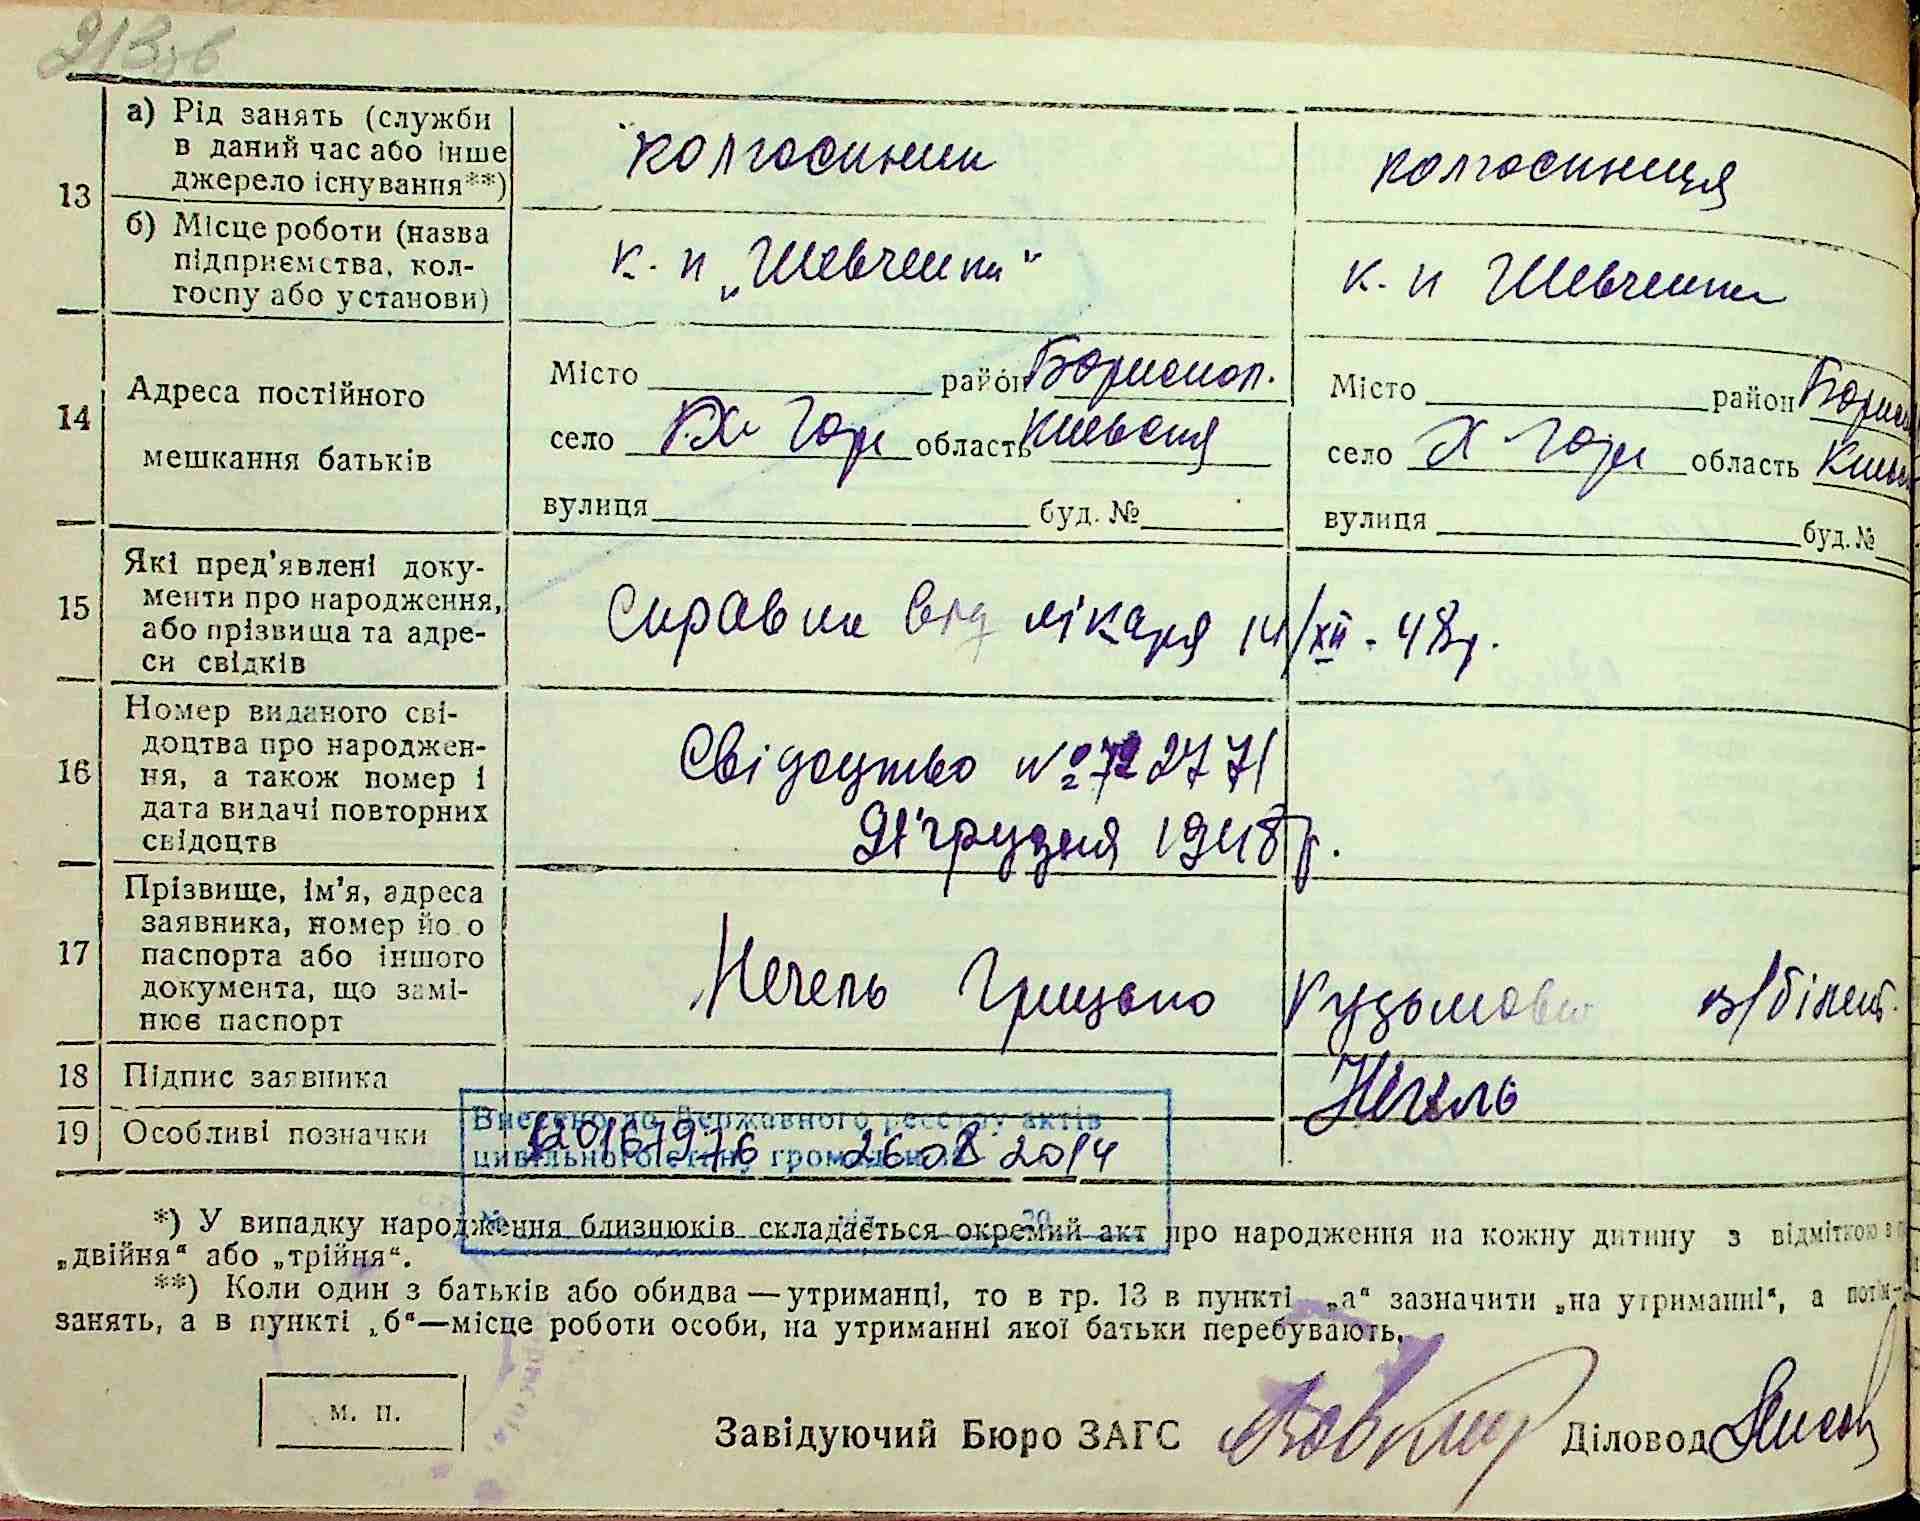 213зв
13
а) Рід занять (служби
в даний час або інше
джерело існування**)
колгоспник
колгоспниця
б) Місце роботи (назва
підприємства, кол-
госпу або установи)
к. п „Шевченка“
к. п Шевченка
14
Адреса постійного
мешкання батьків
Місто район Бориспол.
село Гори область Київська
вулиця буд. №
Місто район Борис
село Х Гори область Київ
вулиця буд. №
15
Які пред’явлені доку-
менти про народження,
або прізвища та адре-
си свідків
Справка від лікаря 14/XII - 48р.
16
Номер виданого сві-
доцтва про народжен-
ня, а також номер і
дата видачі повторних
свідоцтв
Свідоцтво № 2771
грудня 1948р.
17
Прізвище, ім’я, адреса
заявника, номер йо о
паспорта або іншого
документа, що замі-
нює паспорт
Нечель Грицько Кузьмович в/білет.
18
Підпис заявника
Нечель
19
Особливі позначки
Внесено до Державного реєстру актів
цивільного стану громадян
26 08 2014
*) У випадку народження близнюків складається окремий акт про народження на кожну дитину з відміткою в
„двійня“ або „трійня“.
**) Коли один з батьків або обидва — утриманці, то в гр. 13 в пункті „а“ зазначити „на утриманні“, а потім
занять, а в пункті „б“—місце роботи особи, на утриманні якої батьки перебувають.
м. п.
Завідуючий Бюро ЗАГС
Діловод